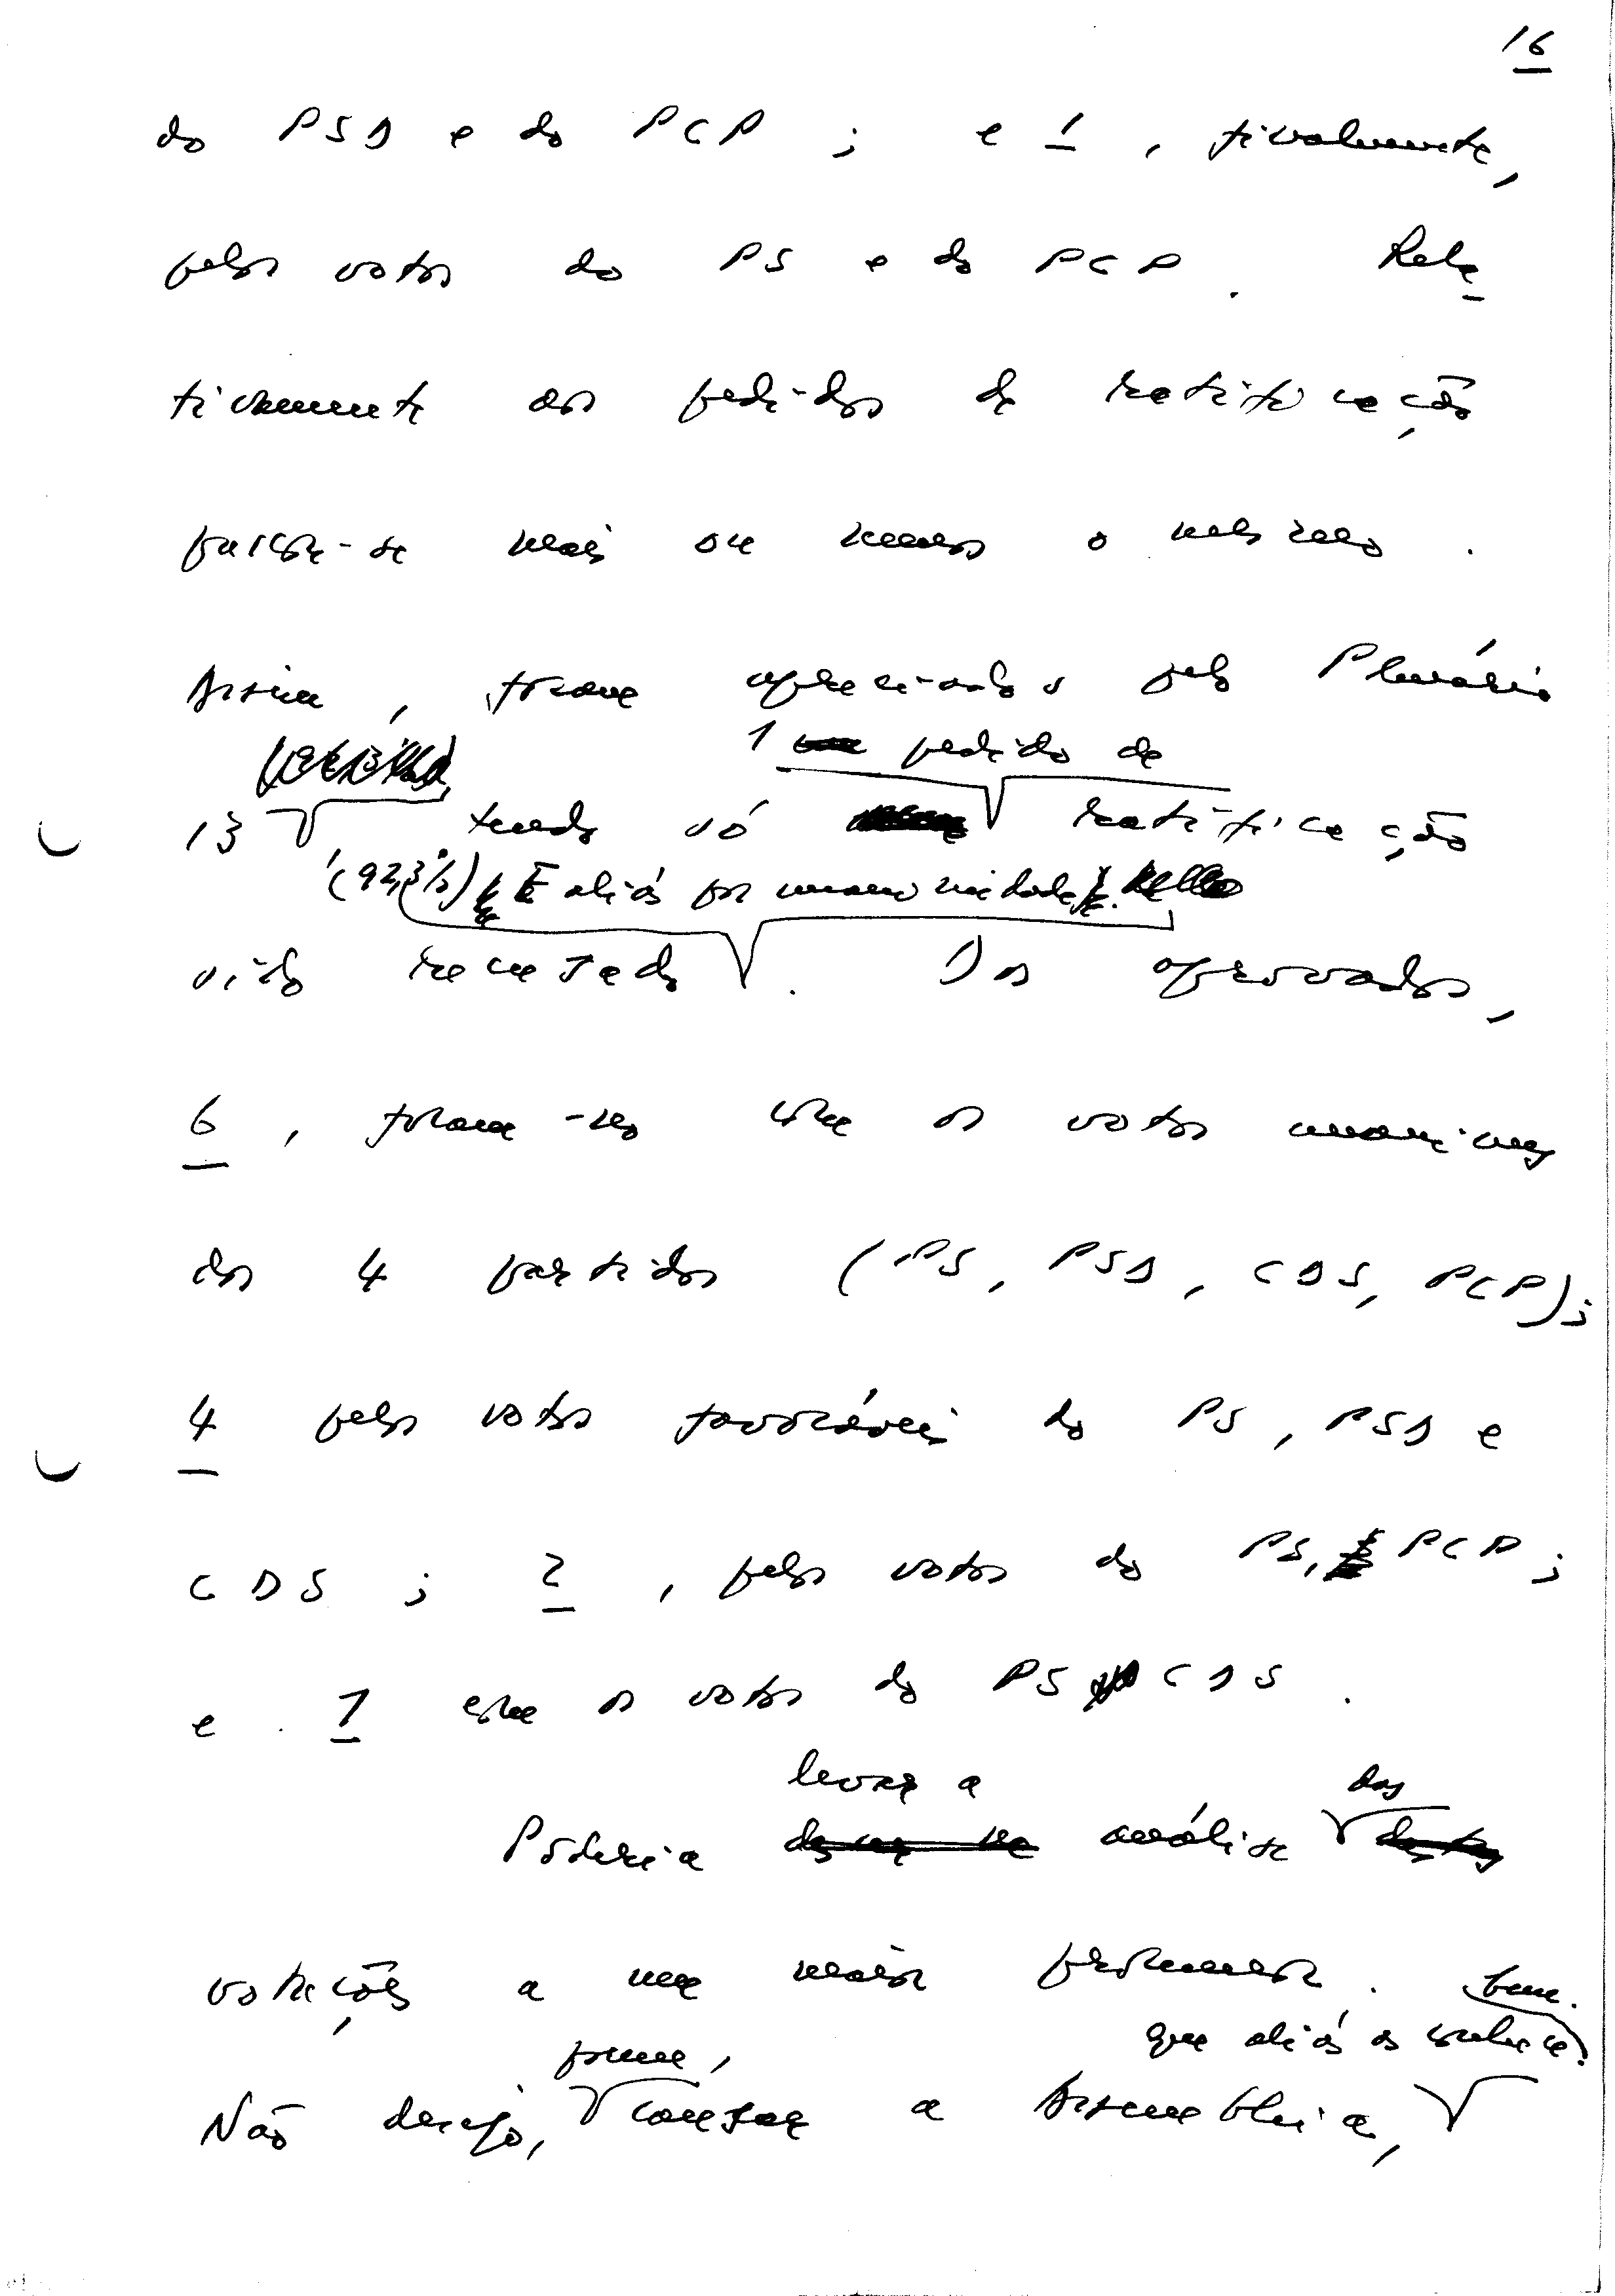 16
do PSD e do PCP ; e 1 , finalmente,
pelos votos do PS e do PCP . Rela
tivamente aos pedidos de ratificação
passa-se mais ou menos o mesmo .
Assim , foram apreciados pelo Plenário
1 pedido de
13 tendo só ratificação
(92,3%) E aliás por unanimidade.
sido recusado . Dos aprovados,
6 , foram-no com os votos unanimes
dos 4 partidos (PS, PSD, CDS, PCP);
4 pelos votos favoráveis do PS, PSD e
CDS ; 2 , pelos votos do PS, PCP ;
e 1 com os votos do PS CDS .
levar a das
Poderia análise
votações a um maior pormenor . 
porém, que aliás os conhece bem.
Não desejo, cansar a Assembleia,